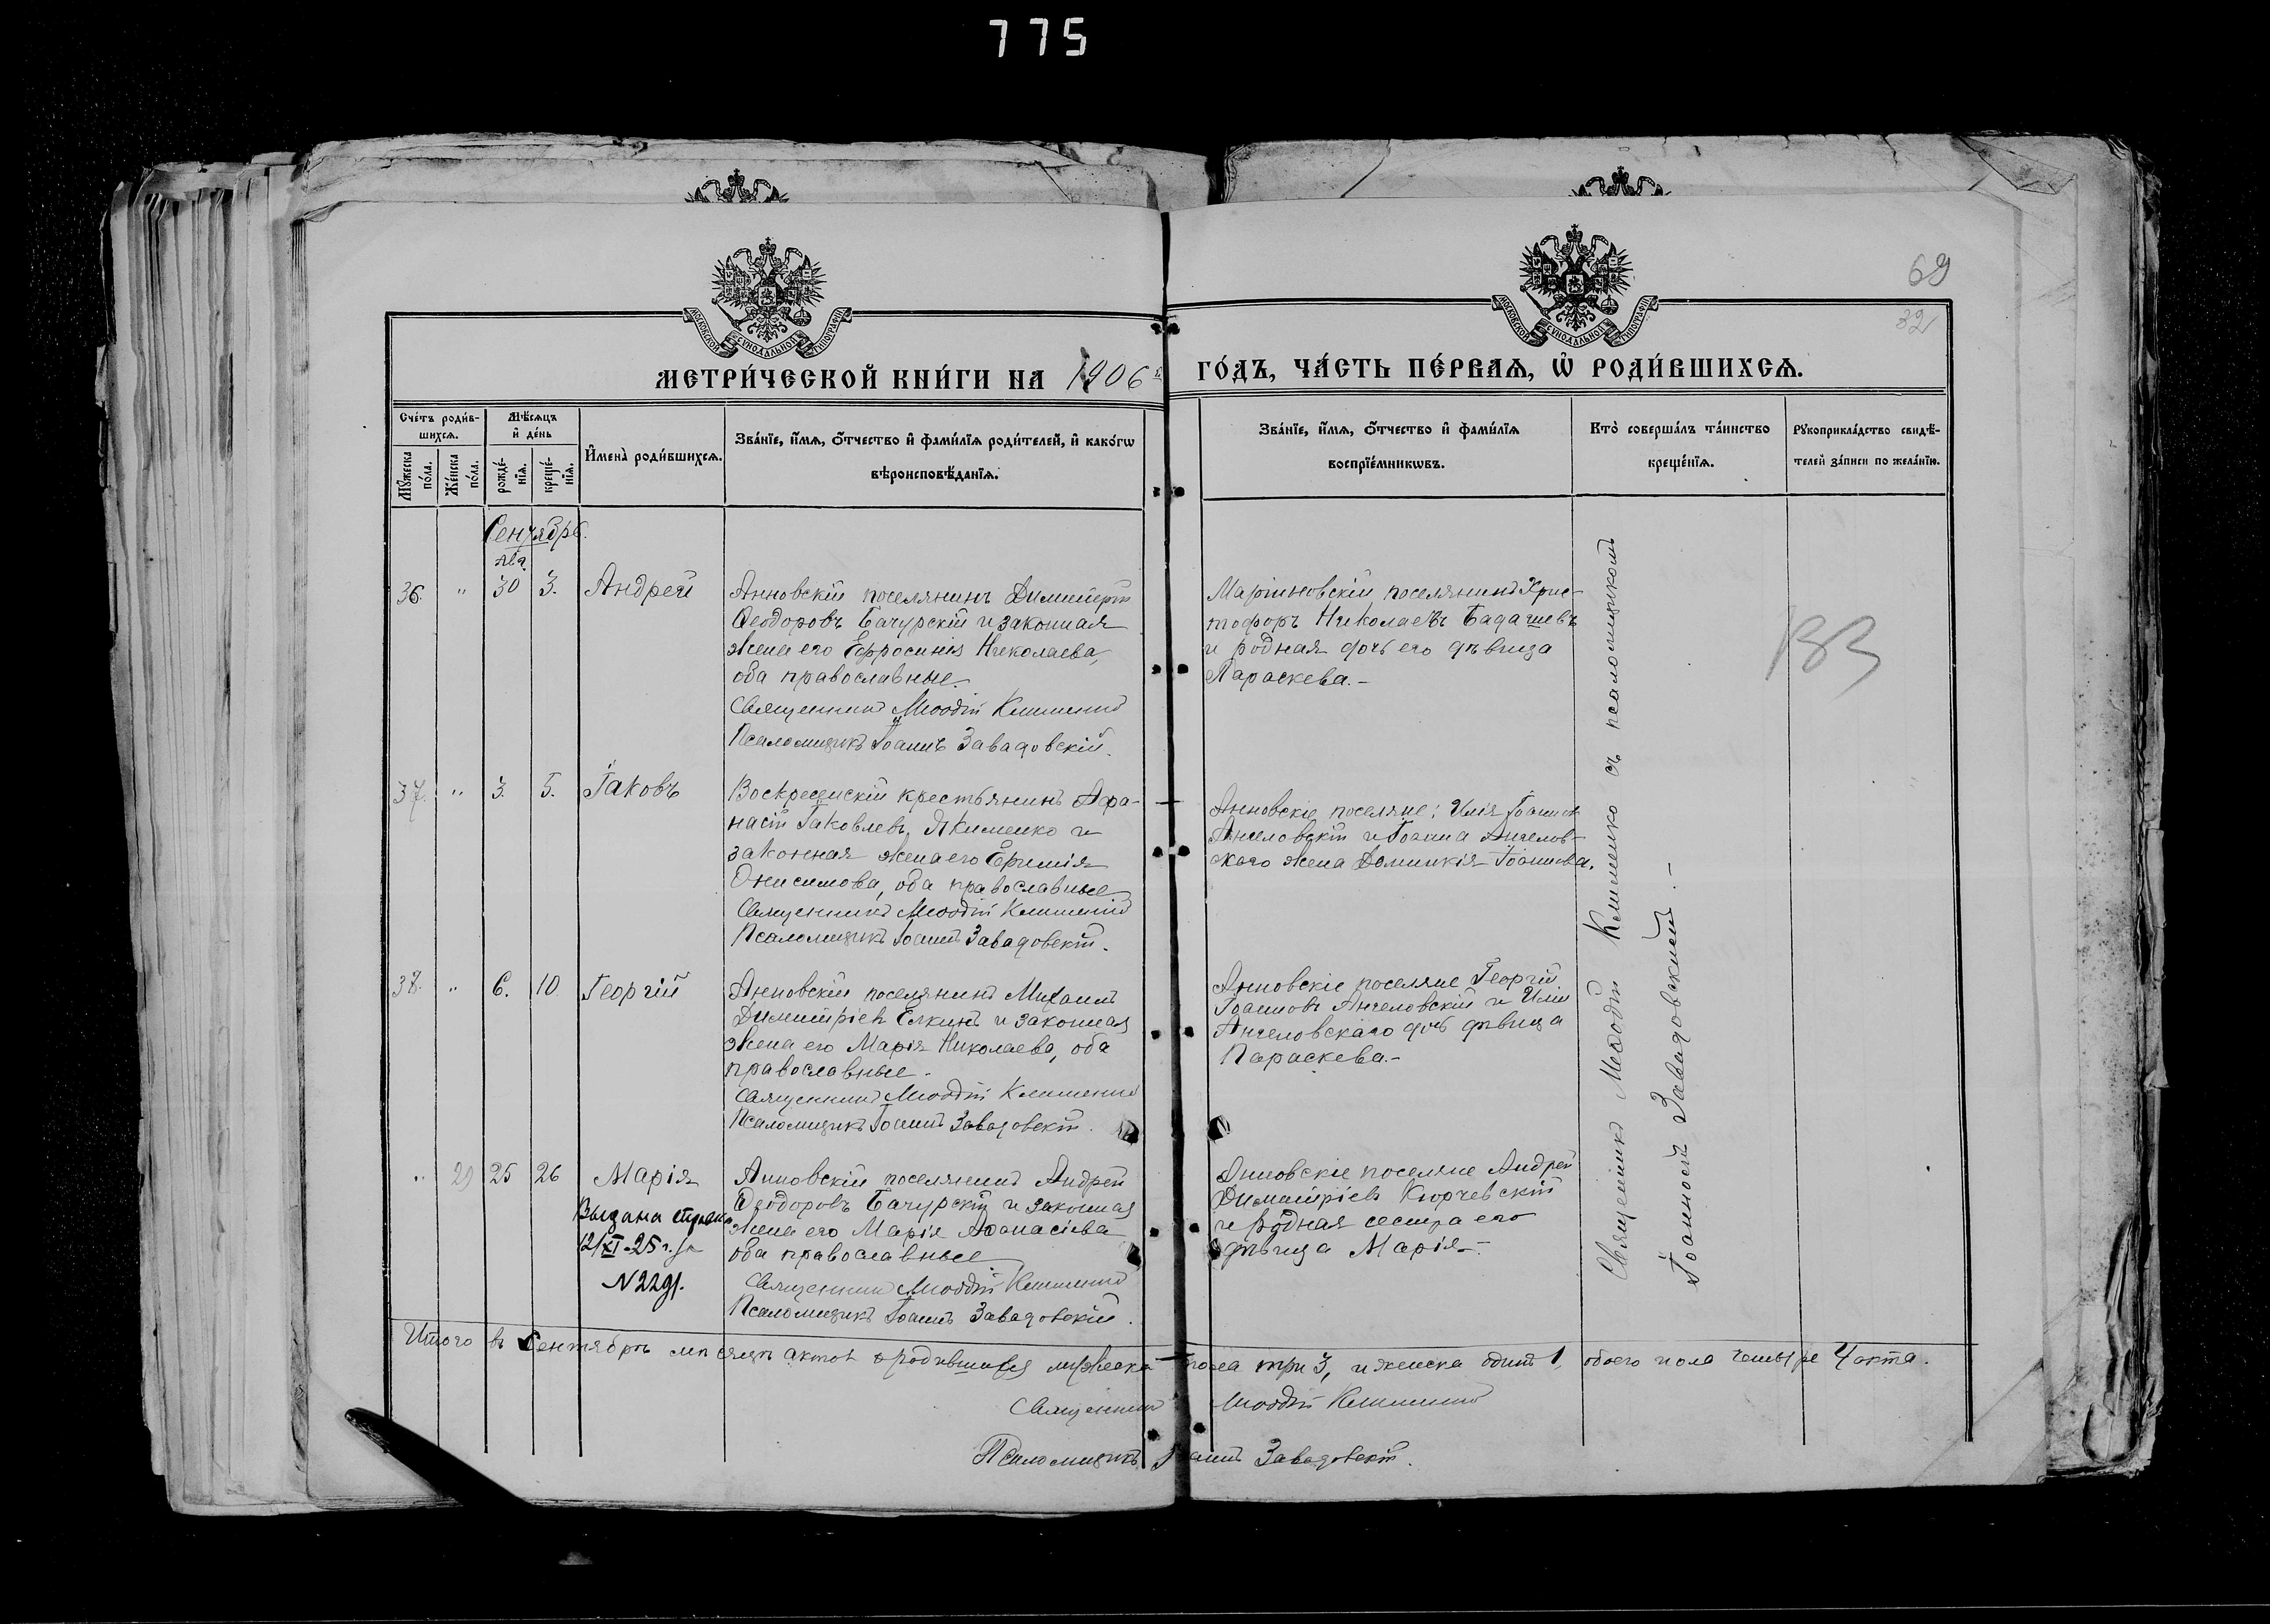 775
69
32
МОСКОВСКОЙ СУНОДАЛЬНОЙ ТИПОГРАФІИ
МОСКОВСКОЙ СУНОДАЛЬНОЙ ТИПОГРАФІИ
МЕТРИ́ЧЕСКОЙ КНИ́ГИ НА 1906 ГО́ДЪ, ЧА́СТЬ ПЕ́РВАѦ, Ѡ҆ РОДИ́ВШИХСѦ.
Сче́тъ роди́в-
шихсѧ.
Мꙋ́жеска по́ла.
Же́нска по́ла.
Мѣ́сѧцъ
и҆ де́нь
рожде́-
нїѧ.
креще́-
нїѧ.
И҆мена̀ роди́вшихсѧ.
Зва́нїе, и҆́мѧ, ѻ҆́тчество и҆ фами́лїѧ роди́телей, и҆ како́гѡ
вѣроисповѣ́данїѧ.
Зва́нїе, и҆́мѧ, ѻ҆́тчество и҆ фами́лїѧ
воспрїе́мникѡвъ.
Кто̀ соверша́лъ та́инство
креще́нїѧ.
Рꙋкоприкла́дство свидѣ́-
телей за́писи по жела́нїю.
Сентябрь.
Авг.
36. " 30 3. Андрей
Анновскій поселянинъ Димитрій
Ѳеодоровъ Бачурскій и законная
жена его Ефросинія Николаева,
оба православные.
Священникъ Меѳодій Клименко
Псаломщикъ Іоаннъ Завадовскій.
Маріиновскій поселянинъ Хрис-
тофоръ Николаевъ Бадашевъ
и родная дочь его дѣвица
Параскева.-
37. " 3. 5. Іаковъ
Воскресенскій крестьянинъ Аѳа-
насій Іаковлевъ Якименко и
законная жена его Ефимія
Онисимова, оба православные
Священникъ Меѳодій Клименко
Псаломщикъ Іоаннъ Завадовскій.
Анновскіе поселяне: Илія Іоанновъ
Ангеловскій и Іоанна Ангелов-
скаго жена Домникія Іоаннова.
38. " 6. 10. Георгій
Анновскій поселянинъ Михаилъ
Димитріевъ Елкинъ и законная
жена его Марія Николаева, оба
православные.
Священникъ Меѳодій Клименко
Псаломщикъ Іоаннъ Завадовскій.
Анновскіе поселяне Георгій
Іоанновъ Ангеловскій и Иліи
Ангеловскаго дочь дѣвица
Параскева.-
" 29 25 26 Марія
Выдана справка
12/XI-25 г. за
N 2291.
Анновскій поселянинъ Андрей
Ѳеодоровъ Бачурскій и законная
жена его Марія Аѳанасіева
оба православные
Священникъ Меѳодій Клименко
Псаломщикъ Іоаннъ Завадовскій.
Анновскіе поселяне Андрей
Димитріевъ Кюрчевскій
и родная сестра его
дѣвица Марія.-
Священникъ Меѳодій Клименко съ псаломщикомъ
Іоанномъ Завадовскимъ.-
Итого въ Сентябрѣ мѣсяцѣ актовъ о родившихся мужеска пола три 3, и женска одинъ 1, обоего пола четыре 4 акта.
Священникъ Меѳодій Клименко
Псаломщикъ Іоаннъ Завадовскій.